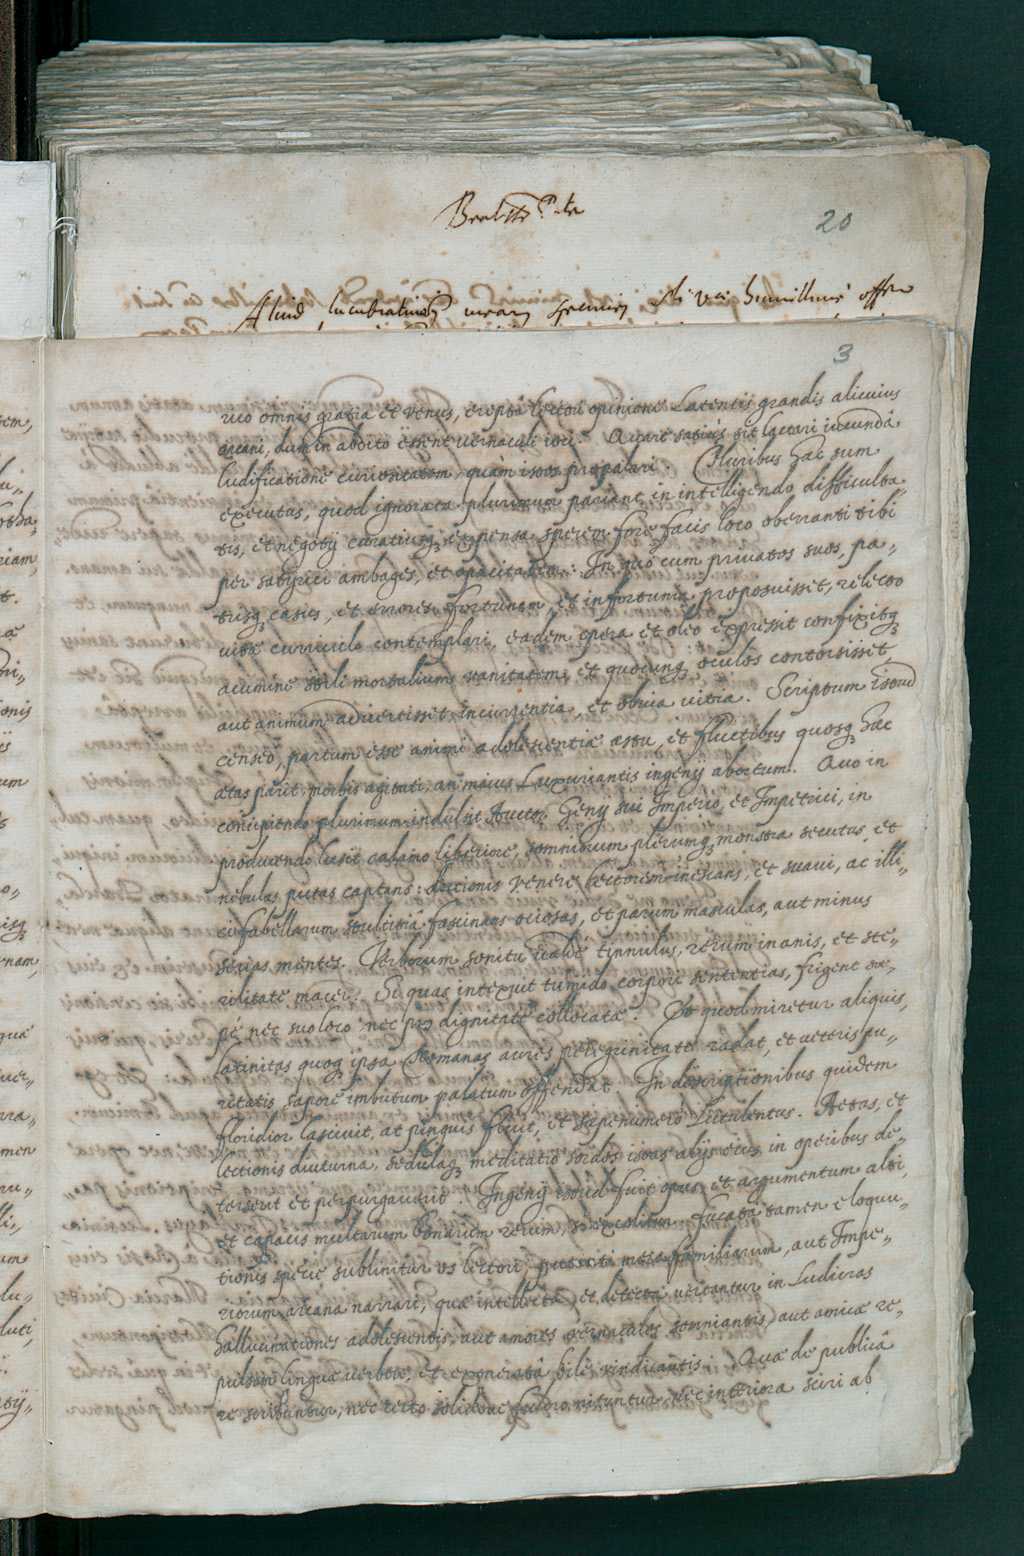 20
Aliud lucubrationis meae specimen
3
ruo omnis gratia et venus, ereptâ lectori opinione Latentis grandis alicuius
arcani, dum in abdito essent vernaculi ioci. Arcare satius sit lactari iucundâ
ludificatione curiositatem, quàm istos propalari. Pluribus hac sum
executus, quod ignorata plurimum pariant in intelligendo difficulta„
tis, et negotij curatiusq. expensa sperem fore facis loco oberranti tibi
per satyrici ambages, et opacitatem: In quo cum privatos suos, pa„
trisq. casus, et errores, fortunam, et infortunia proposuisset, relecto
vitæ curriculo contemplari, eadem opera et oleo expressit confixitq.
acumine stili mortalium vanitatem, et quocunq. oculos contorsisset,
aut animum advertisset, incurrentia, et obvia vitia. Scriptum istud
censeo, partum esse animi adolescentiæ æstu, et fluctibus quosq. hæc
ætas parit, morbis agitati, an maius Luxuriantis ingenij abortum. Quo in
concipiendo plurimum indulsit Auctor Genij sui Imperio, et Impetrici, in
producendo lusit calamo liberiore, somniorum plerumq. monstra secutus, et
nebulas putas captans: dictionis venere lectorem inescans, et suavi, ac illi„
ci fabellarum stultitiâ fascinans otiosas, et parum masculas, aut minus
serias mentes. Verborum sonitu valdè tinnulus, rerum inanis, et ste„
rilitate macer. Si quas intexuit tumido corpore sententias, frigent sæ„
pè nec suo loco nec pro dignitate collocatæ. Et quod miretur aliquis,
latinitas quoq. ipsa Romanas aures peregrinitate radat, et veteris pu„
ritatis sapore imbutum palatum offendat. In descriptionibus quidem
floridior lascivit, at pinguis fluit, et sæpenumero Luculentus. Aetas, et
lectionis diuturna, sedulaq. meditatio sordes istas alijs eius in operibus de„
tersent et perpurgaverit. Ingenij istud fuit opus, et argumentum alti,
et capacis multarum bonarum rerum, si excolitur. Fucatâ tamen eloquu„
tionis specie sublinitur os lectori putanti metafamiliarum, aut Impe„
riorum arcana narrari, quæ intellecta, et detecta vertantur in Ludicras
hallucinationes adolescentis, aut amores vernaculos somniantis, aut amicæ re„
pulsam linguæ verbere, et exoneratâ bile vindicantis. Quæ de publicâ
re scribuntur, nec certo solidove fulcro nituntur, nec interiora sciri ab